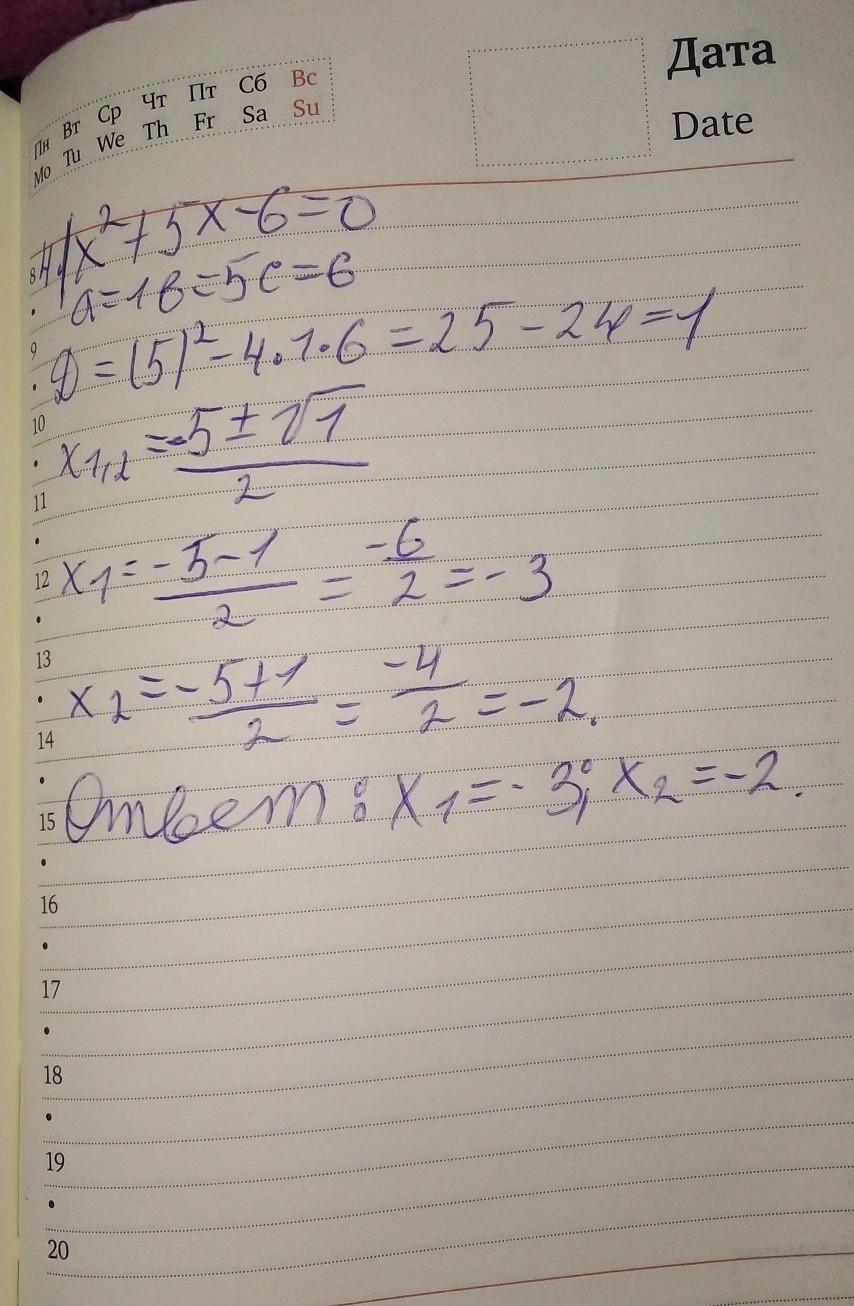 Пн Вт Ср Чт Пт Сб Вс
Mo Tu We Th Fr Sa Su
Дата
Date
4) x²+5x-6=0
8
a=1 в=5 c=6
9
D=(5)²-4·1·6=25-24=1
10
x1,2 = -5±√1 / 2
11
12
x1 = -5-1 / 2 = -6 / 2 = -3
13
x2 = -5+1 / 2 = -4 / 2 = -2.
14
15
Ответ: x1=-3; x2=-2.
16
17
18
19
20